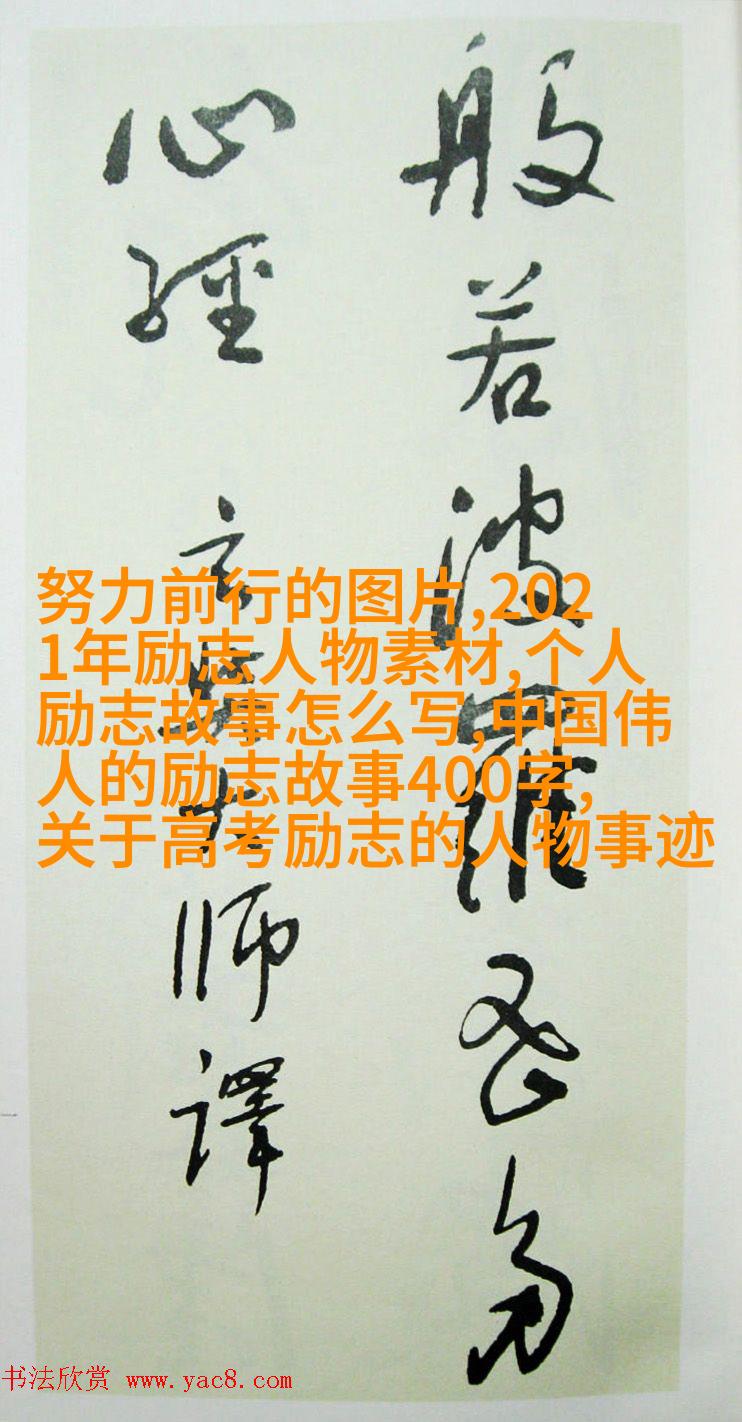 般若波羅蜜多
心經 玄奘大師譯
努力前行的图片,202
1年励志人物素材,个人
励志故事怎么写,中国伟
人的励志故事400字,
关于高考励志的人物事迹
书法欣赏 www.yac8.com